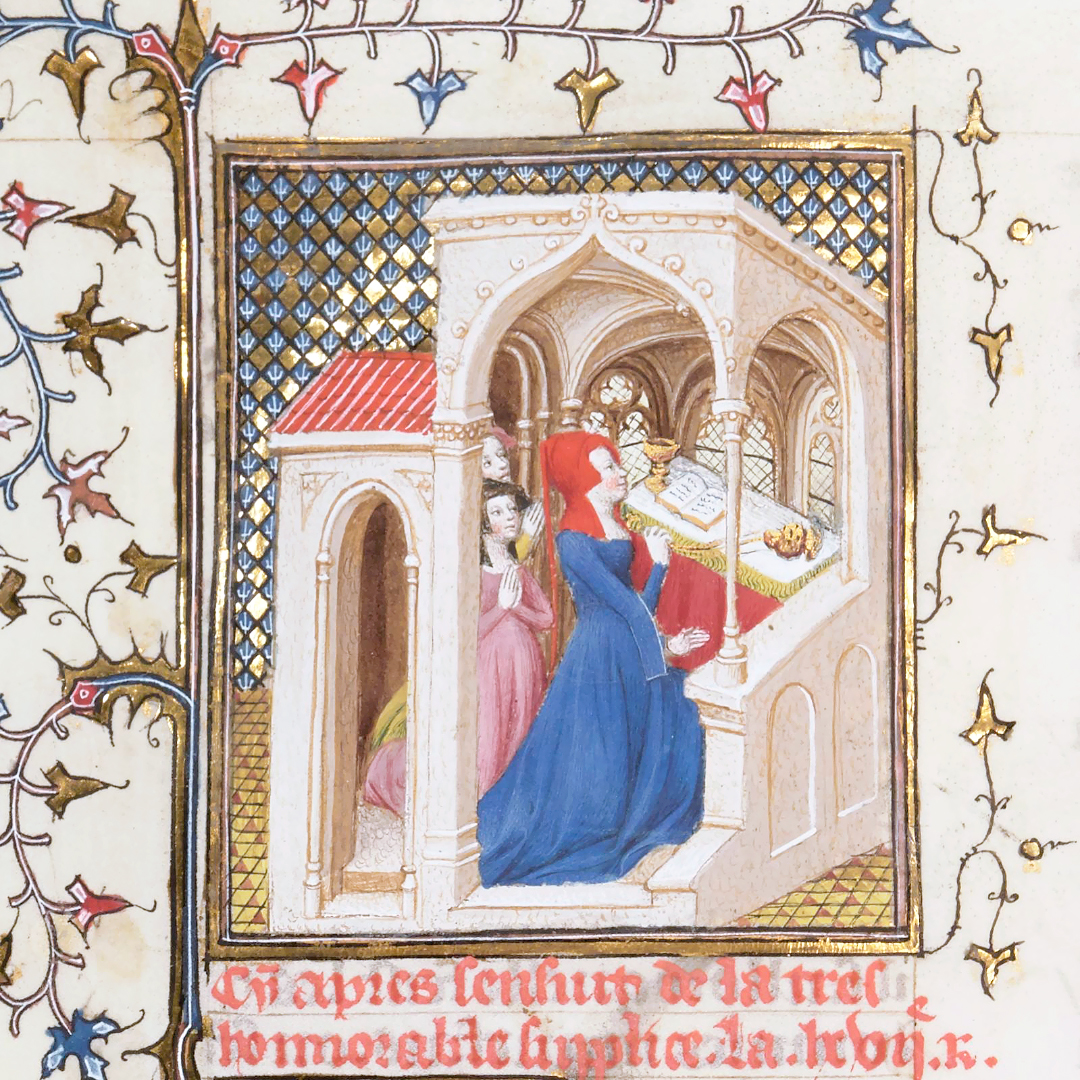 Cy apres sensuit de la tres
honnorable supplice. La .lxvij.e R.